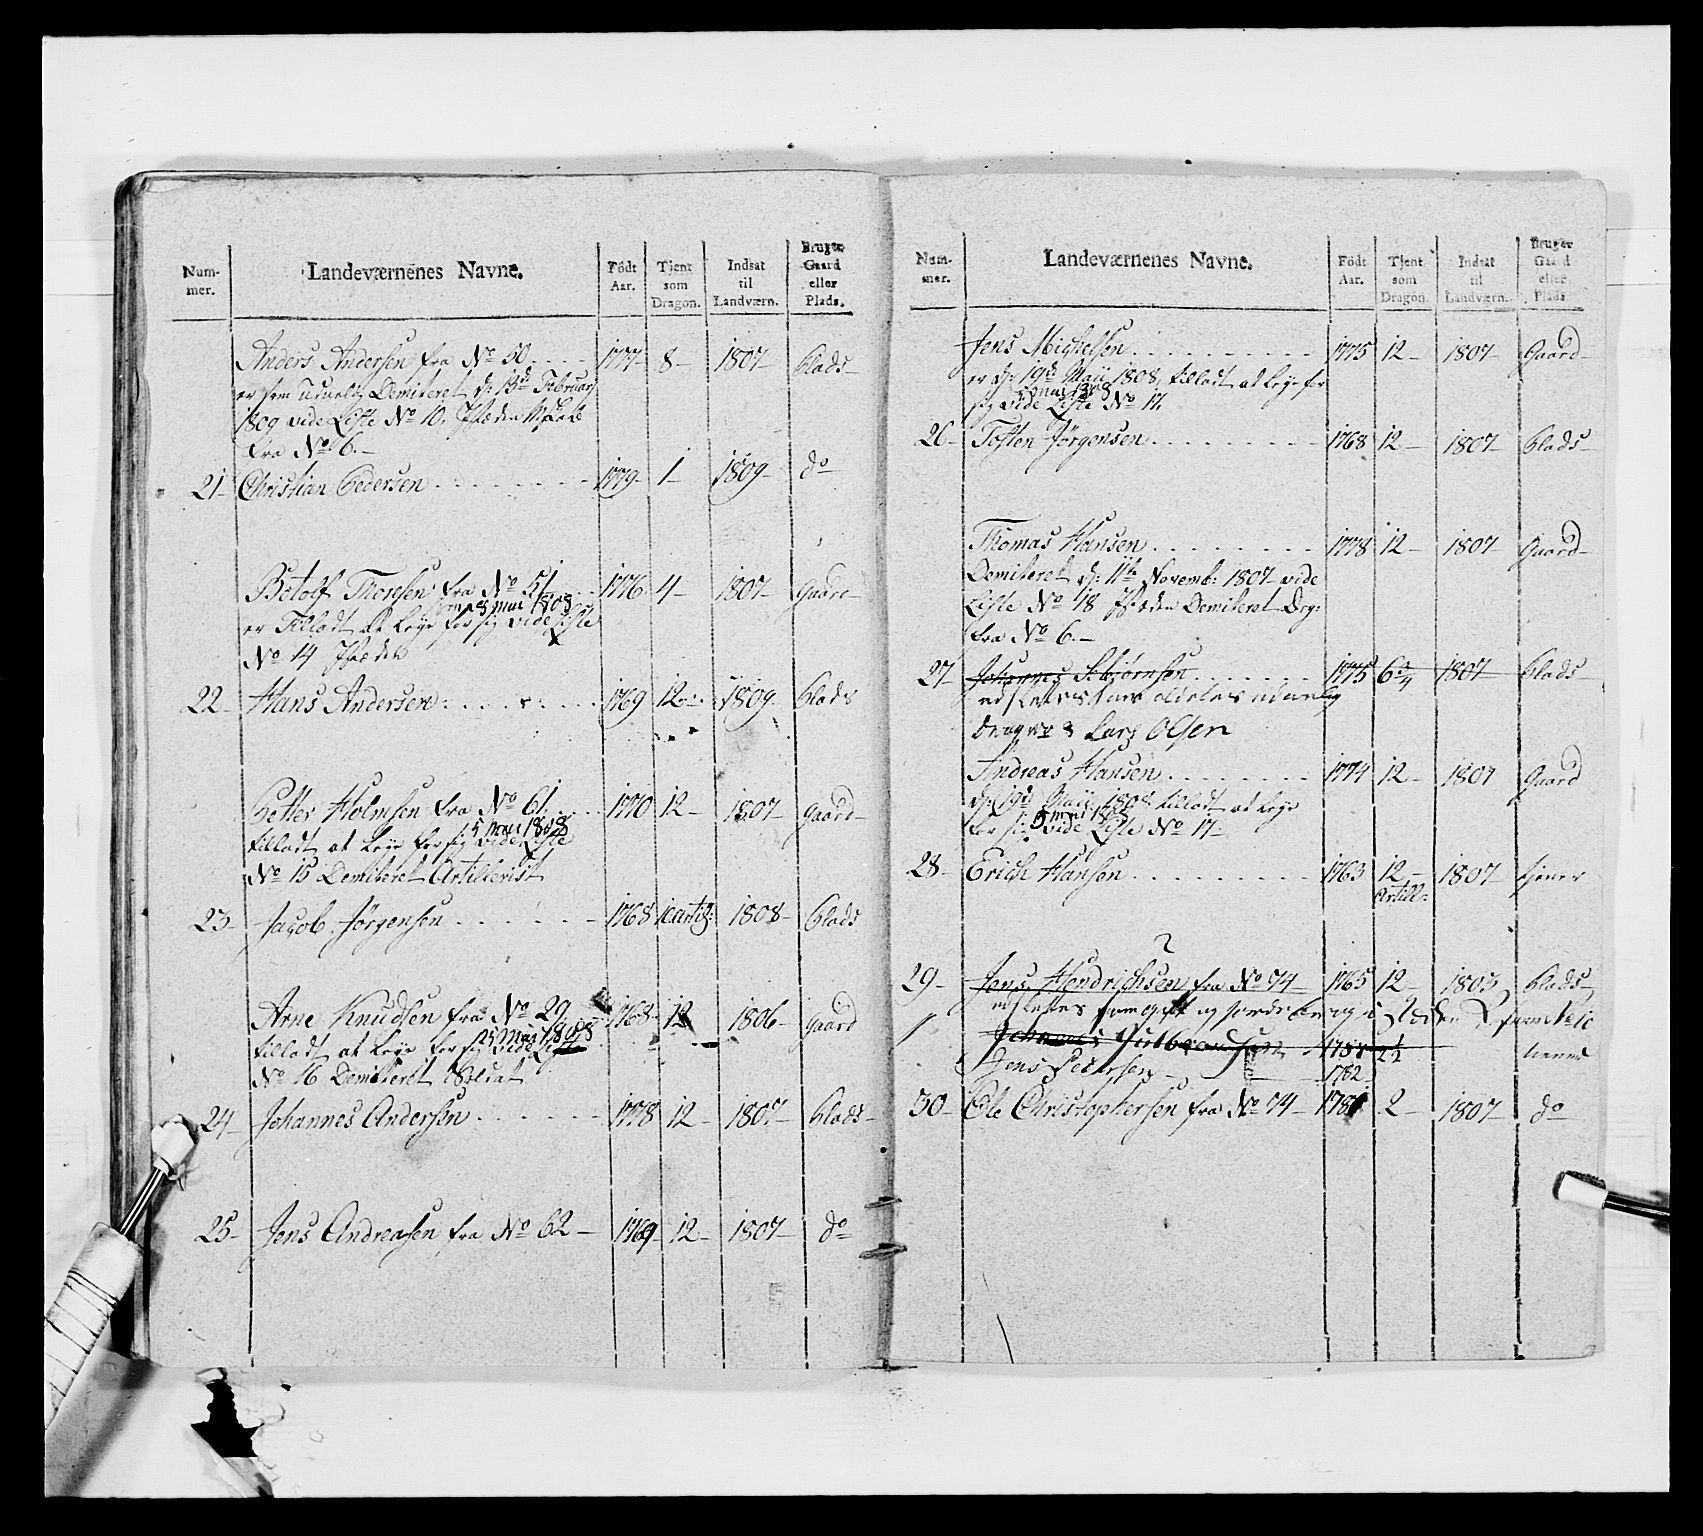 Num-
mer.
Landeværnenes Navne.
Födt
Aar.
Tjent
som
Dragon.
Indsat
til
Landværn.
Bruger
Gaard
eller
Plads.
Anders Andersen fra No 50 1777 8 1807 Plads
er som uduelig Demiteret d: 13de Februar
1809 vide Liste No 10.
fra No 6.
21 Christian Pedersen 1779 1 1809 do
Botolf Thoresen fra No 51 1776 4 1807 Gaard
mai 1808
er Tilladt at leye for sig vide Liste
No 14
22 Hans Andersen 1769 12 1809 Plads
Petter Holmsen fra No 61 1770 12 1807 Gaard
5 mai 1808
tilladt at leye for sig vide Liste
No 15 Demiteret Artillerist
23 Jacob Jørgensen 1768 1808 Plads
Arne Knudsen fra No 29 1768 12 1806 Gaard
mai 1808
tilladt at leye for sig vide Liste
No 16 Demiteret Soldat
24 Johannes Andersen 1778 12 1807 Plads
25 Jens Andreasen fra No 62 1769 12 1807 do
Num-
mer.
Landeværnenes Navne.
Födt
Aar.
Tjent
som
Dragon.
Indsat
til
Landværn.
Bruger
Gaard
eller
Plads.
Jens Michelsen 1775 12 1807 Gaard
er d: 19de Maii 1808, tilladt at leye for
mai 1808
sig vide Liste No 17.
26 Tosten Jørgensen 1768 12 1807 Plads
Thomas Hansen 1778 12 1807 Gaard
Demiteret d: 11te Novemb: 1807 vide
Liste No 18 Demiteret Drag:
fra No 6.
27 Johannes 1775 6 3/4 1807 Plads
udslettes som aldeles uduelig
Lars Olsen
Andreas Hansen 1774 12 1807 Gaard
d: 19de Maii 1808 tilladt at leye
5 mai 1808
for sig vide Liste No 17
28 Erich Hansen 1763 12 1807 tjener
Artill:
2
29 Jens Hendrichsen fra No 74 1765 12 1803 Plads
udslettes som
Johannes Gulbrandsen 2 1/2
Jens Pedersen 1782
30 Ole Christophersen fra No 74 1781 2 1807 do